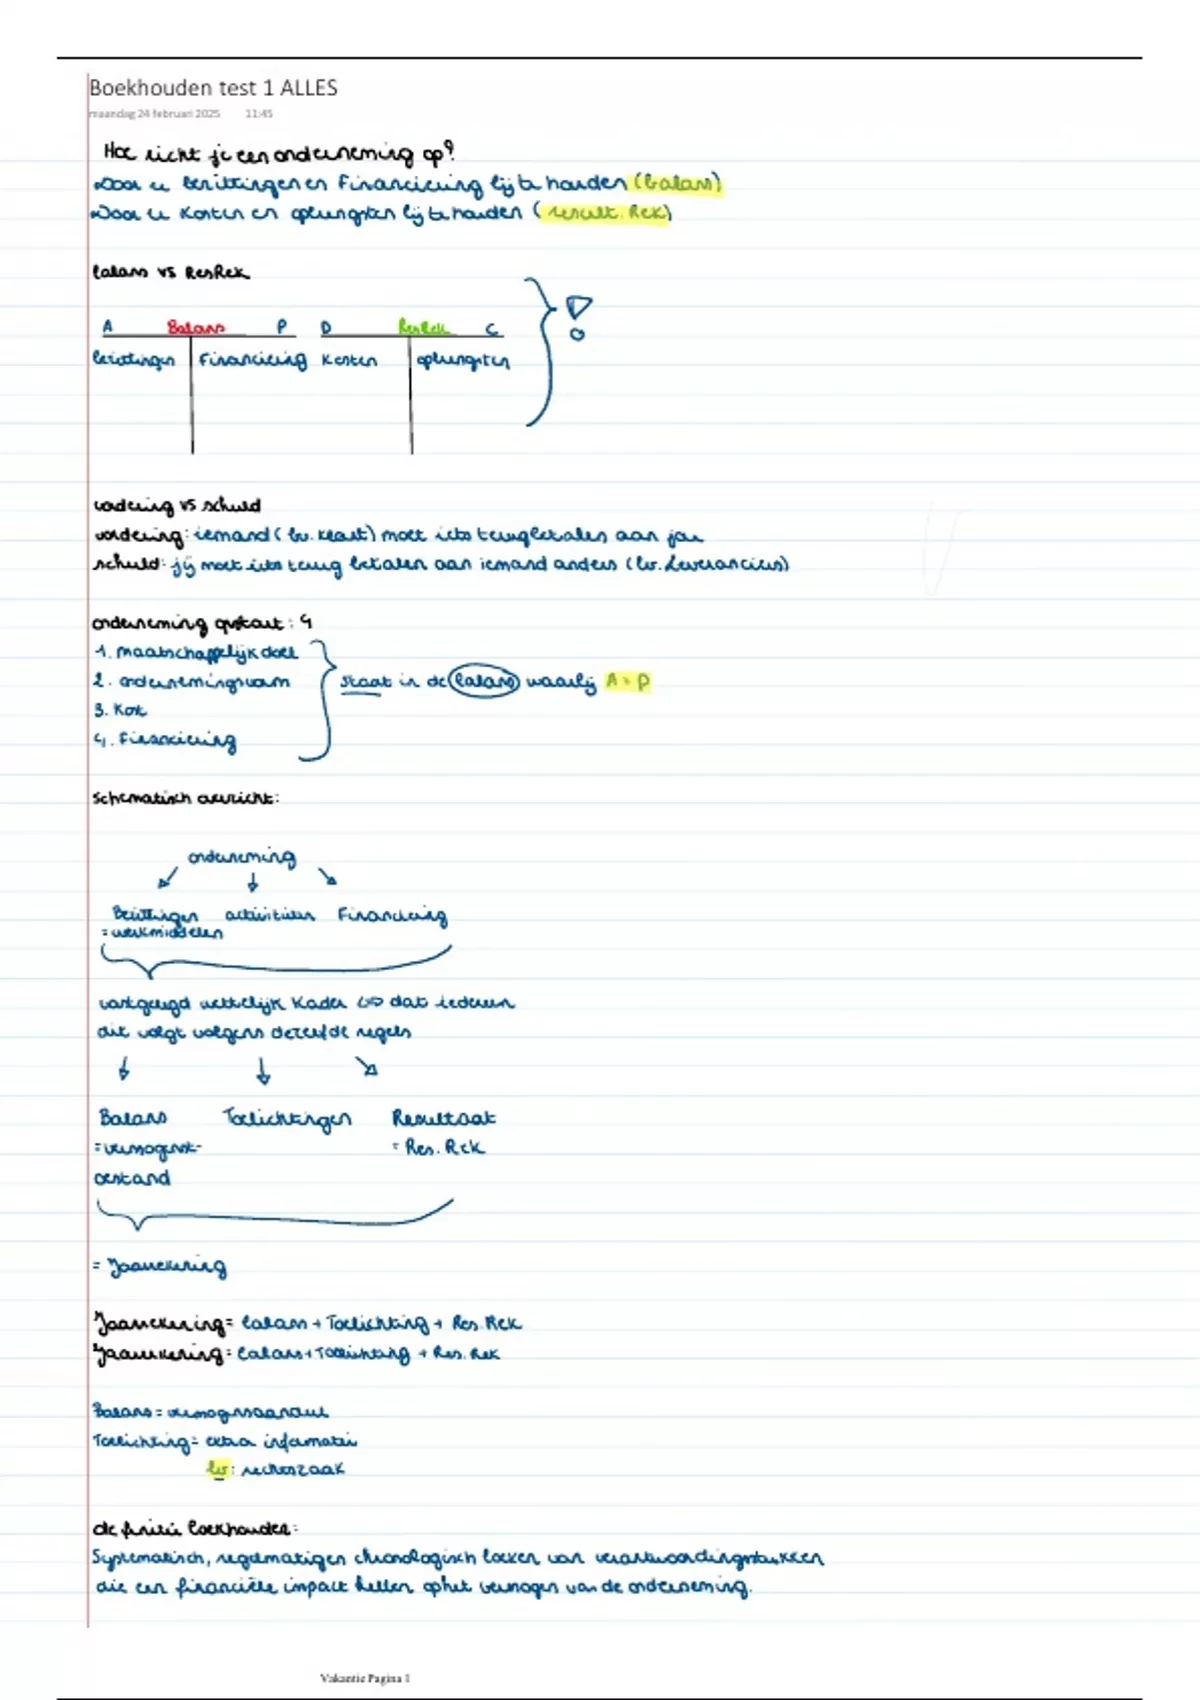 Boekhouden test 1 ALLES
maandag 24 februari 2025 11:45
Hoe richt je een onderneming op?
Door u bezittingen en Financiering bij te houden (balans)
Door u Kosten en opbrengsten bij te houden (result. Rek)
balans vs ResRek
A Balans P D ResRek C
bezittingen Financiering Kosten opbrengsten
vordering vs schuld
vordering: iemand (bv. klant) moet iets terugbetalen aan jou
schuld: jij moet iets terug betalen aan iemand anders (bv. Leveranciers)
onderneming opstart: 4
1. maatschappelijk doel
2. ondernemingsvorm staat in de balans waarbij A = P
3. Kost
4. Financiering
Schematisch overzicht:
onderneming
Bezittingen activiteiten Financiering
= werkmiddelen
vastgelegd wettelijk kader dat iedereen
dit volgt volgens dezelfde regels
Balans Toelichtingen Resultaat
= vermogenst- = Res. Rek
oestand
= Jaarrekening
Jaarrekening = balans + Toelichting + Res. Rek
Jaarrekening: balans + Toelichting + Res. Rek
Balans =
Toelichting = extra informatie
bv: rechtszaak
definitie boekhouden:
Systematisch, regelmatig en chronologisch boeken van verantwoordingsstukken
die een financiële impact hebben op het vermogen van de onderneming.
Vakantie Pagina 1